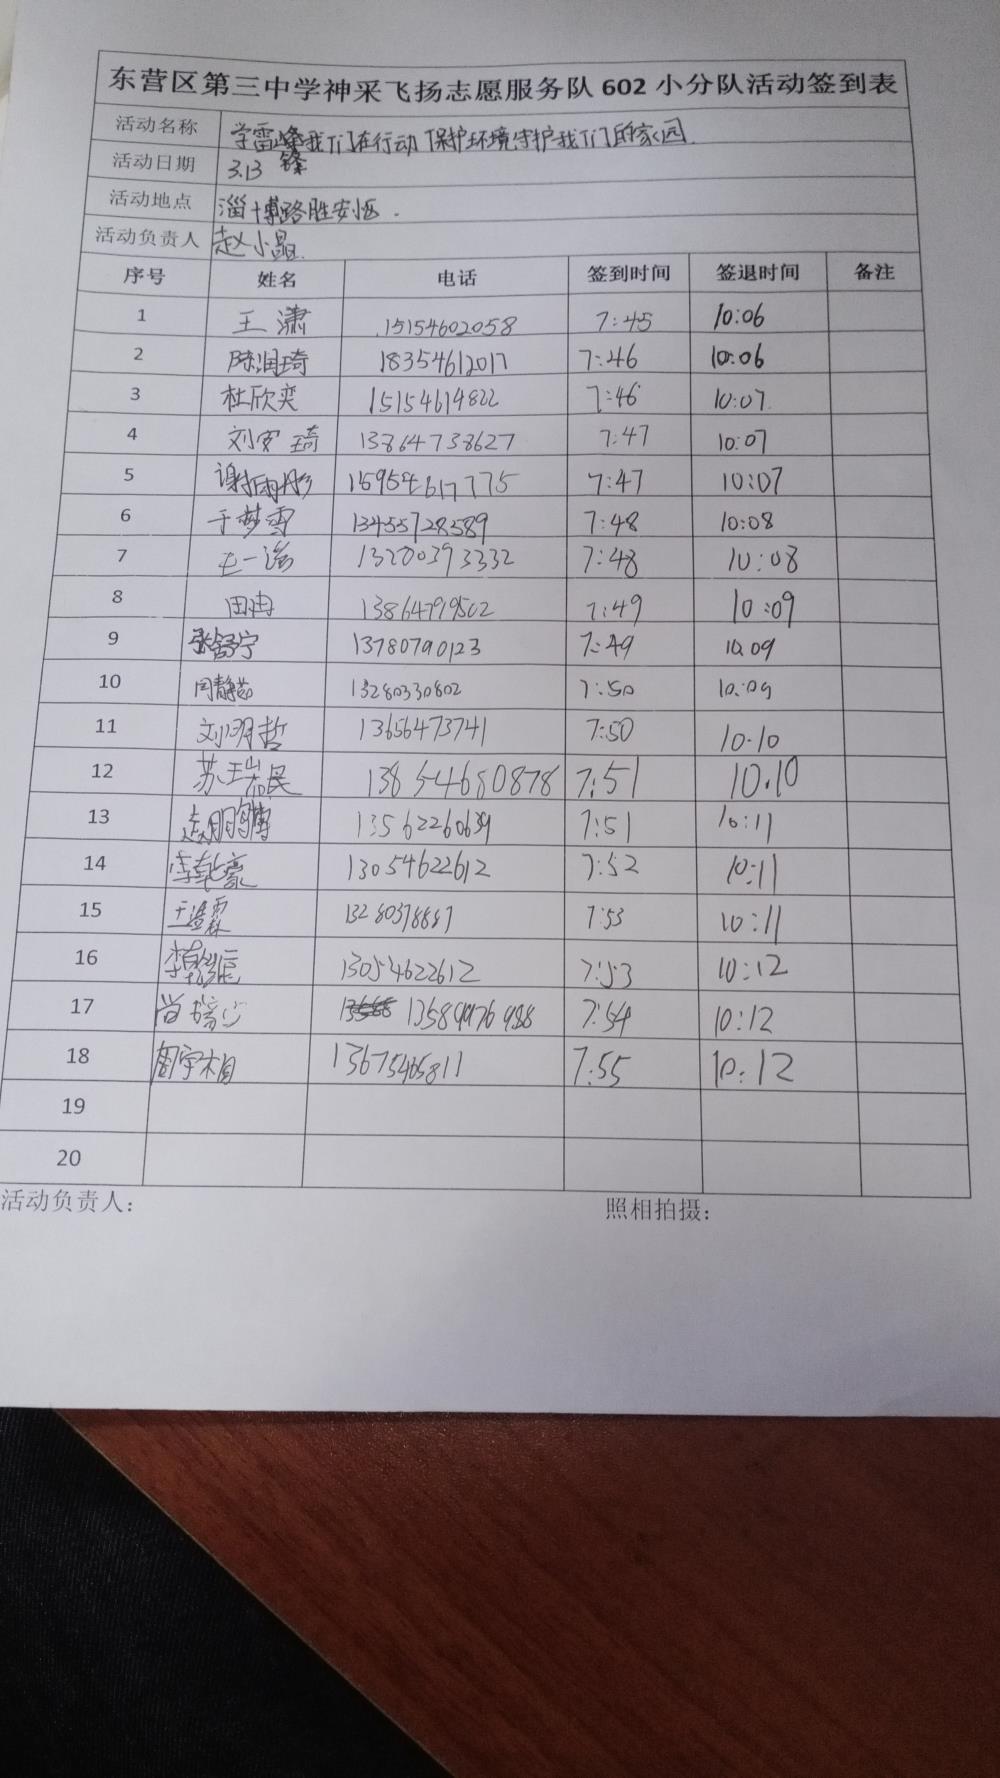 东营区第三中学神采飞扬志愿服务队 602 小分队活动签到表
活动名称 学雷锋我们在行动 保护环境守护我们的家园
活动日期 3.13
活动地点 淄博路胜安
活动负责人 赵小晶
序号 姓名 电话 签到时间 签退时间 备注
1 王潇 15154602058 7:45 10:06
2 陈润琦 18354612017 7:46 10:06
3 杜欣奕 15154614822 7:46 10:07
4 刘安琦 13864738627 7:47 10:07
5 谢雨彤 15954617775 7:47 10:07
6 于梦雪 13455728589 7:48 10:08
7 13280393332 7:48 10:08
8 田冉 13864799502 7:49 10:09
9 张舒宁 13780790123 7:49 10:09
10 闫静茹 13280330802 7:50 10:09
11 刘明哲 13656473741 7:50 10:10
12 苏瑞民 13854680878 7:51 10:10
13 13562260639 7:51 10:11
14 李乾豪 13054622612 7:52 10:11
15 13280378887 7:53 10:11
16 13054622612 7:53 10:12
17 7:54 10:12
18 13675465811 7:55 10:12
19
20
活动负责人： 照相拍摄：